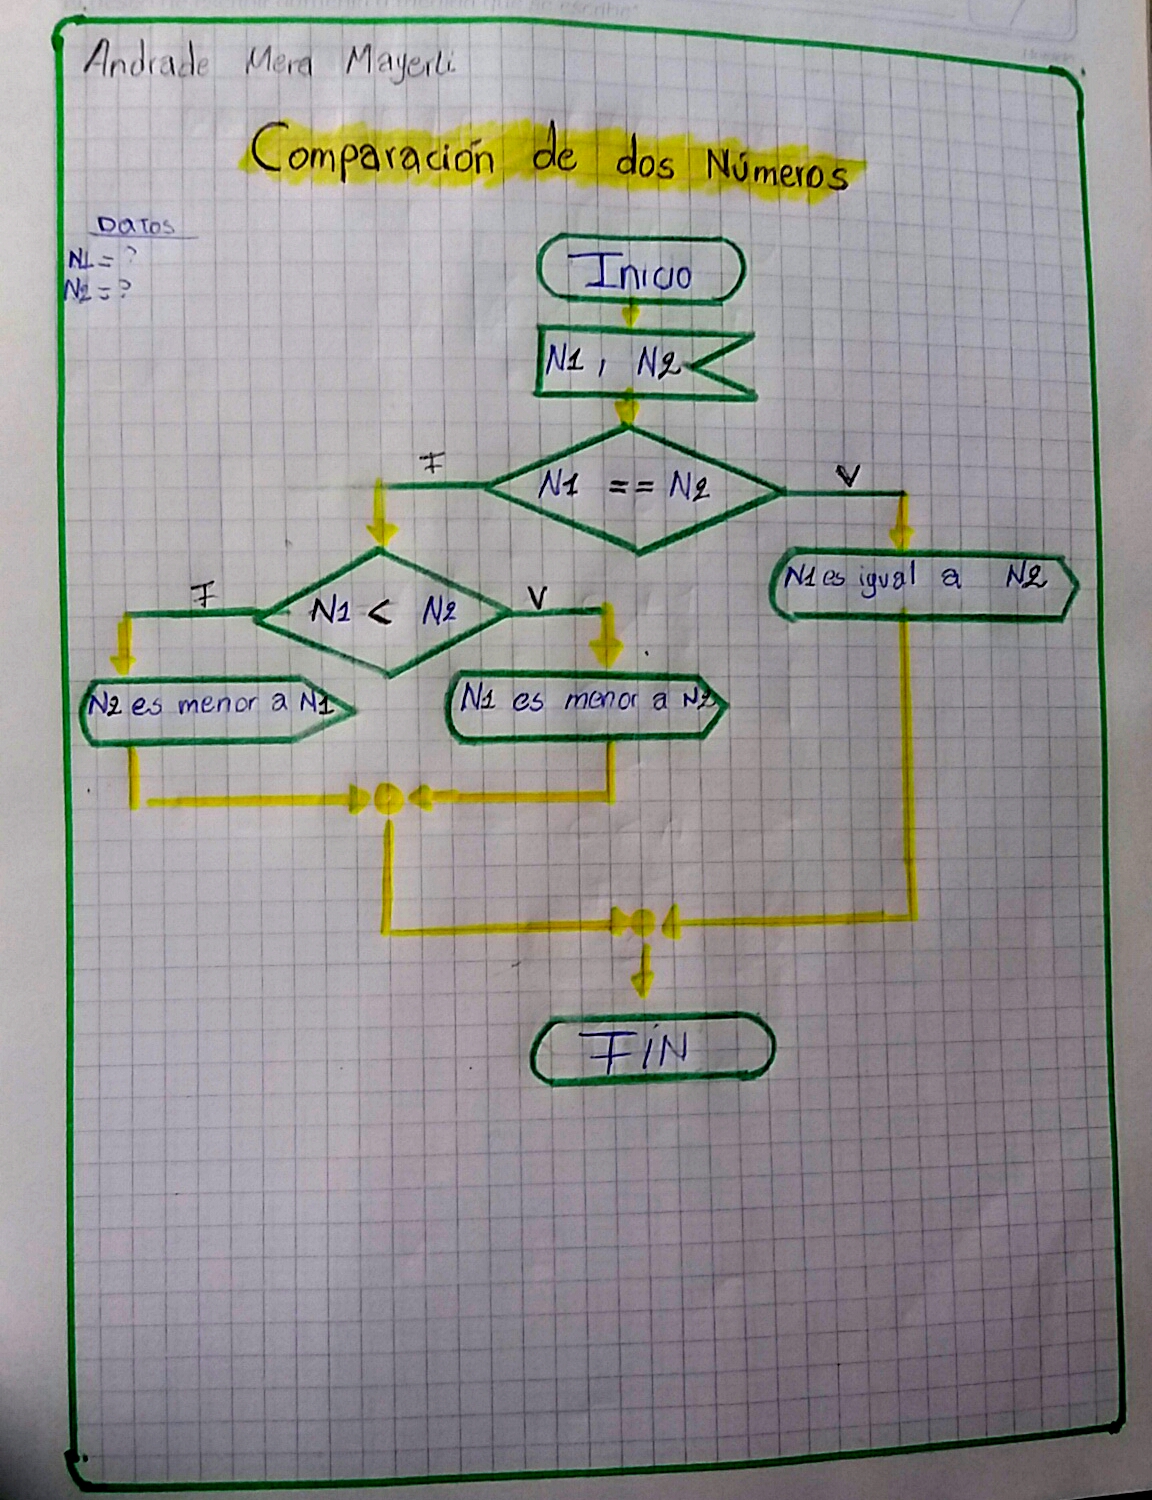 Andrade Mera Mayerli
Comparación de dos Números
Datos
N1 = ?
N2 = ?
Inicio
N1, N2
N1 == N2
F
V
N1 es igual a N2
N1 < N2
F
V
N2 es menor a N1
N1 es menor a N2
FIN